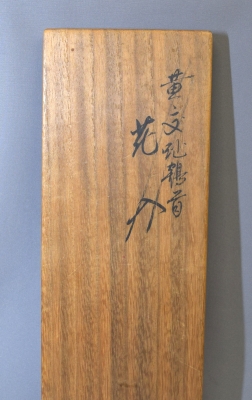 黄交趾鶴首
花入